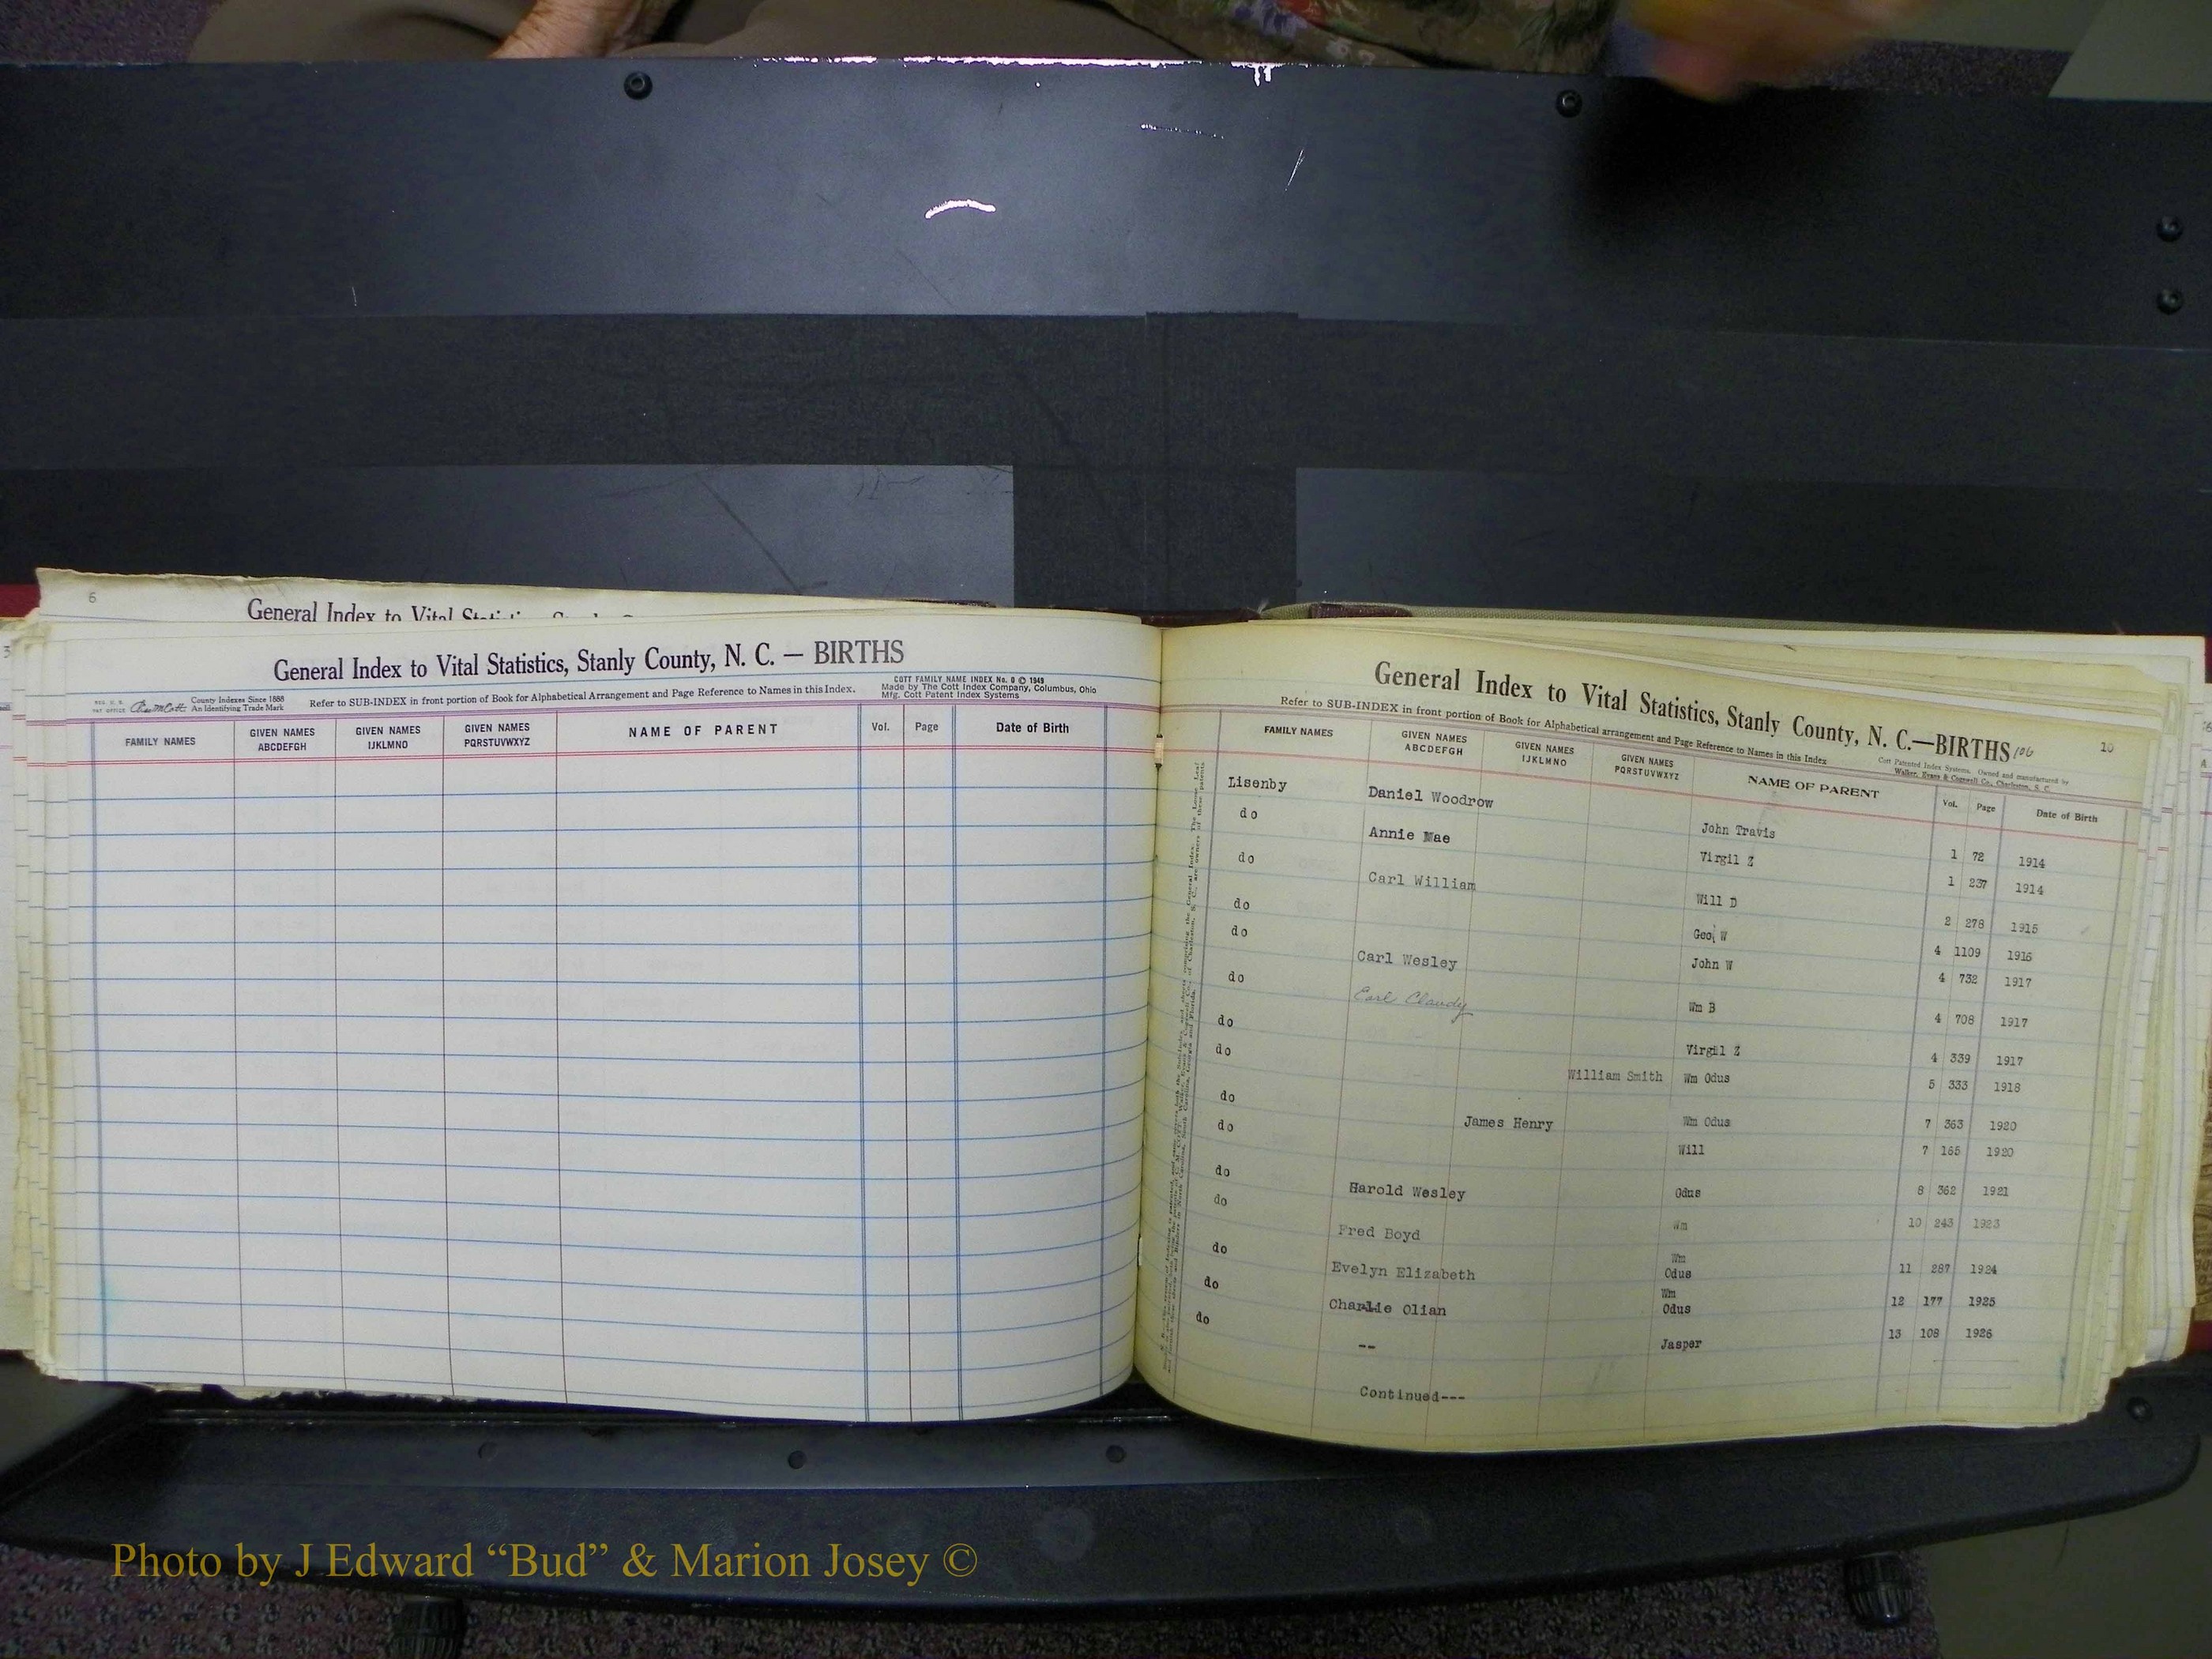 6
General Index to Vital
General Index to Vital Statistics, Stanly County, N. C. — BIRTHS
County Indexes Since 1888
An Identifying Trade Mark
Refer to SUB-INDEX in front portion of Book for Alphabetical Arrangement and Page Reference to Names in this Index.
COTT FAMILY NAME INDEX No. 0 © 1949
Made by The Cott Index Company, Columbus, Ohio
Mfg. Cott Patent Index Systems
FAMILY NAMES GIVEN NAMES ABCDEFGH GIVEN NAMES IJKLMNO GIVEN NAMES PQRSTUVWXYZ NAME OF PARENT Vol. Page Date of Birth
General Index to Vital Statistics, Stanly County, N. C.—BIRTHS 106 10
Refer to SUB-INDEX in front portion of Book for Alphabetical arrangement and Page Reference to Names in this Index
Cott Patented Index Systems. Owned and manufactured by
Walker, Evans & Cogswell Co., Charleston, S. C.
FAMILY NAMES GIVEN NAMES ABCDEFGH GIVEN NAMES IJKLMNO GIVEN NAMES PQRSTUVWXYZ NAME OF PARENT Vol. Page Date of Birth
Lisenby Daniel Woodrow John Travis 1 72 1914
do Annie Mae Virgil Z 1 237 1914
do Carl William Will D 2 278 1915
do Geo W 4 1109 1916
do Carl Wesley John W 4 732 1917
do Earl Claudy Wm B 4 708 1917
do Virgil Z 4 339 1917
do William Smith Wm Odus 5 333 1918
do James Henry Wm Odus 7 363 1920
do Will 7 165 1920
do Harold Wesley Odus 8 362 1921
do Fred Boyd Wm 10 243 1923
do Evelyn Elizabeth Wm Odus 11 287 1924
do Charlie Olian Wm Odus 12 177 1925
do -- Jasper 13 108 1926
Continued---
Photo by J Edward “Bud” & Marion Josey ©